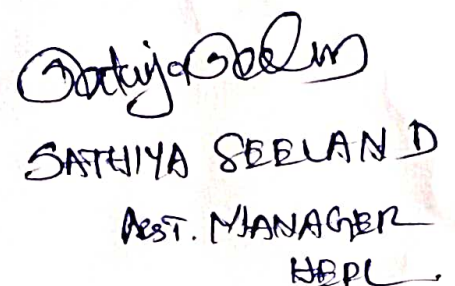 Sathiya Seelan
SATHIYA SEELAN D
ASST. MANAGER
HEPL